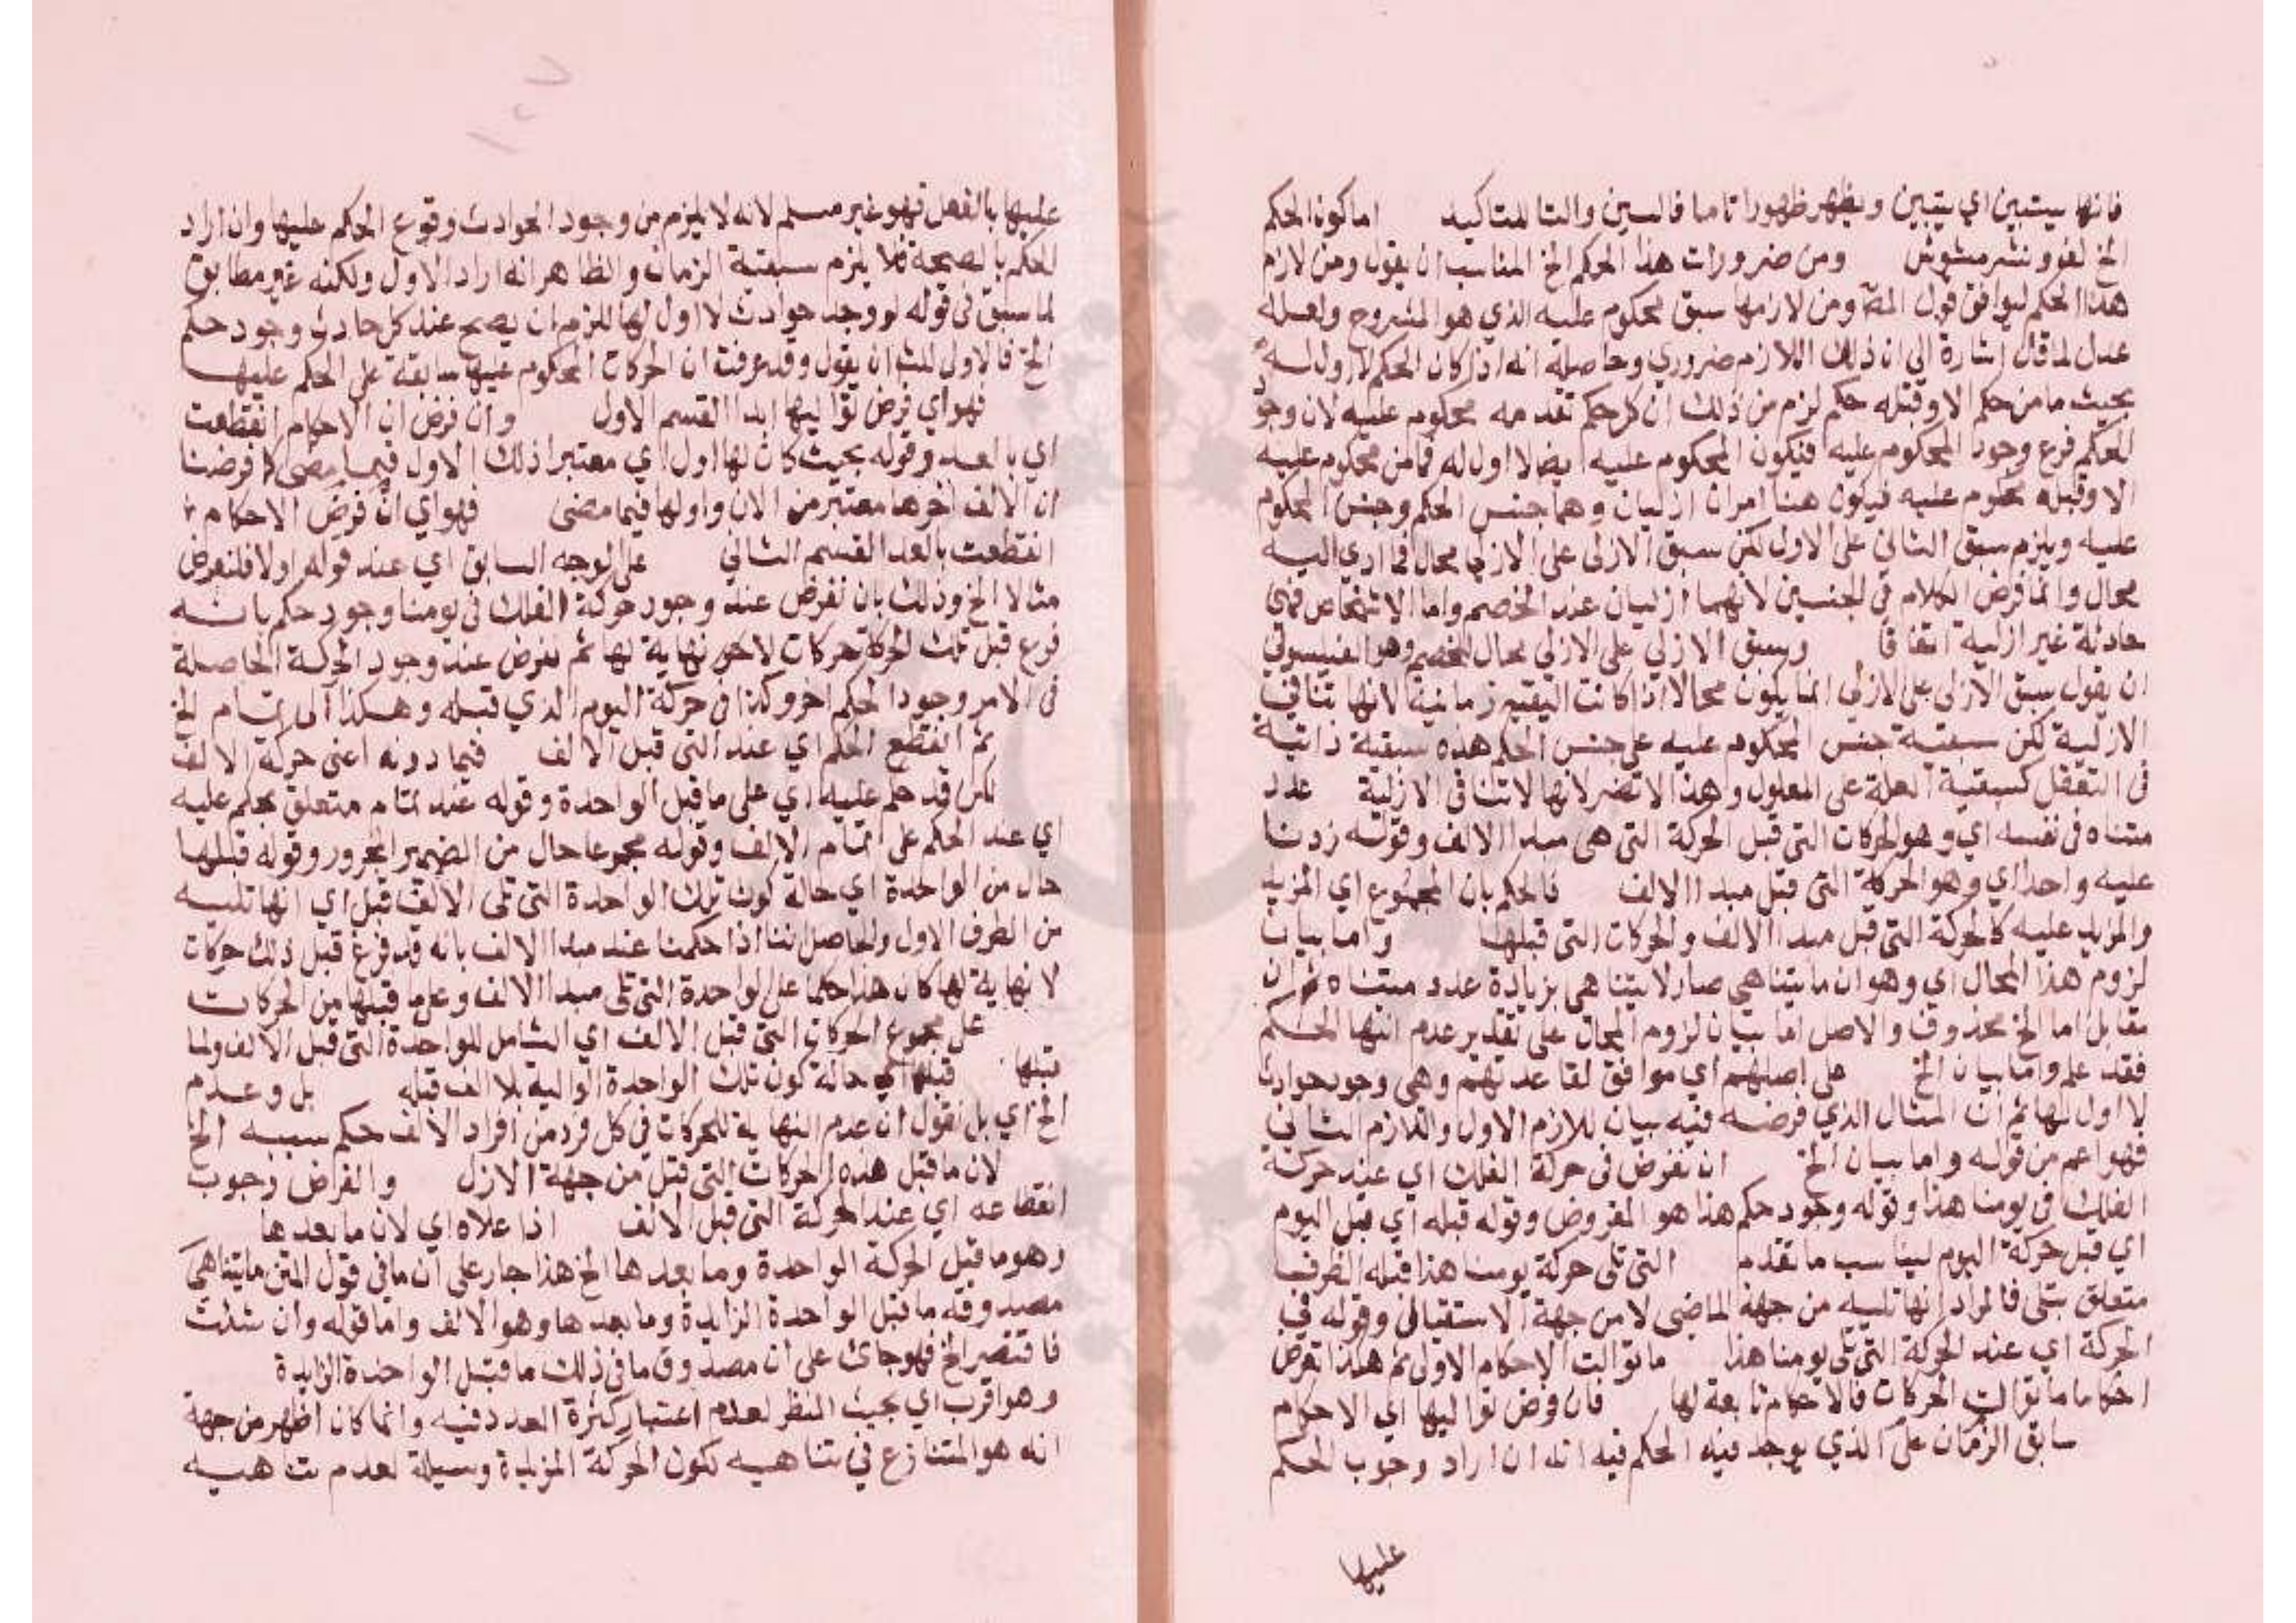 فانها يستبين اي يتبين ويظهر ظهورا تاما فالسين والتا للتاكيد اما كون الحكم
الخ لف ونشر مشوش ومن ضرورات هذا الحكم الخ المناسب ان يقول ومن لازم
هذا الحكم ليوافق قول المص ومن لازمها سبق محكوم عليه الذي هو المشروح ولعله
عدل لما قال اشارة الى ان ذلك اللازم ضروري وحاصله انه اذا كان الحكم لا اول له
بحيث ما من حكم الا وقبله حكم لزم من ذلك ان كل حكم تقدمه محكوم عليه لان وجود
الحكم فرع وجود المحكوم عليه فيكون المحكوم عليه ايضا لا اول له فما من محكوم عليه
الا وقبله محكوم عليه فيكون هنا امران ازليان وهما جنس الحكم وجنس المحكوم
عليه ويلزم سبق الثاني على الاول لكن سبق الازلى على الازلي محال فما ادي اليه
محال وانما فرض الكلام في الجنسين لانهما ازليان عند الخصم واما الاشخاص فهي
حادثة غير ازلية اتفاقا وسبق الازلي على الازلي محال للخصم وهو الفيلسوفي
ان يقول سبق الازلى على الازلي انما يكون محالا اذا كانت السبقية زمانية لانها تنافي
الازلية لكن سبقية جنس المحكوم عليه على جنس الحكم هذه سبقية ذاتية
في التعقل كسبقية العلة على المعلول وهذا لا تضر لانها لا تنافى الازلية عدد
متناه في نفسه اي وهو الحركات التي قبل الحركة التي هي مبدا الالف وقوله زدنا
عليه واحدا اي وهو الحركة التي قبل مبدا الالف فالحكم بان المجموع اي المزيد
والمزيد عليه كالحركة التي قبل مبدا الالف والحركات التي قبلها واما بيان
لزوم هذا المحال اي وهو ان ما يتناهي صار لا يتناهى بزيادة عدد متناه ثم ان
مقابل اما الخ محذوف والاصل اما بيان لزوم المحال على تقدير عدم انتها الحكم
فقد علم واما بيان الخ على اصلهم اي موافق لقاعدتهم وهي وجود حوادث
لا اول لها ثم ان المثال الذي فرضه فيه بيان للازم الاول واللازم الثاني
فهو اعم من قوله واما بيان الخ ان نفرض في حركة الفلك اي عند حركة
الفلك في يومنا هذا وقوله وجود حكم هذا هو المفروض وقوله قبله اي قبل اليوم
اي قبل حركة اليوم ليناسب ما تقدم التي تلى حركة يومنا هذا قبله الظرف
متعلق بتلى فالمراد انها تليه من جهة الماضي لا من جهة الاستقبال وقوله في
الحركة اي عند الحركة التي تلى يومنا هذا ما توالت الاحكام الاولى ثم هكذا تفرض
احكاما ما توالت الحركات فالاحكام تابعة لها فان فرض تواليها اي الاحكام
سابق الزمان على الذي يوجد فيه الحكم فيه انه ان اراد وجوب الحكم
عليها
عليها بالفعل فهو غير مسلم لانه لا يلزم من وجود الحوادث وقوع الحكم عليها وان اراد
الحكم بالصحية فلا يلزم سبقية الزمان والظاهر انه اراد الاول ولكنه غير مطابق
لما سبق في قوله لو وجد حوادث لا اول لها للزم ان يصح عند كل حادث وجود حكم
الخ فالاولى للش ان يقول وقد عرفت ان الحركات المحكوم عليها سابقة على الحكم عليها
فهو اي فرض تواليها ابدا القسم الاول وان فرض ان الاحكام انقطعت
اي بالعد وقوله بحيث كان لها اول اي معتبرا ذلك الاول فيما مضى كما فرضنا
ان الالف اخرها معتبر من الان واولها فيما مضى فهو اي ان فرض الاحكام
انقطعت بالعد القسم الثاني على الوجه السابق اي عند قوله اولا فلنفرض
مثلا الخ وذلك بان نفرض عند وجود حركة الفلك في يومنا وجود حكم بانه
فرغ قبل تلك الحركة حركات لا نهاية لها ثم نفرض عند وجود الحركة الحاصلة
في الامر وجود الحكم اخر وكذا في حركة اليوم الذي قبله وهكذا الى تمام الخ
ثم انقطع الحكم اي عند التي قبل الالف فيما دونه اعني حركة الالف
لكن قد حكم عليه اي على ما قبل الواحدة وقوله عند تمام متعلق بحكم عليه
اي عند الحكم على تمام الالف وقوله مجموعا حال من الضمير المجرور وقوله قبلها
حال من الواحدة اي حالة كون تلك الواحدة التي تلى الالف قبل اي انها تليه
من الطرف الاول والحاصل اننا اذا حكمنا عند مبدا الالف بانه قد فرغ قبل ذلك حركات
لا نهاية لها كان هذا حكما على الواحدة التي تلى مبدا الالف وعلى ما قبلها من الحركات
على مجموع الحركات التي قبل الالف اي الشامل للواحدة التي قبل الالف ولما
قبلها قبلها اي حالة كون تلك الواحدة الوالية بلا الف قبله بل وعدم
الخ اي بل نقول ان عدم النهاية للحركات في كل فرد من افراد الالف حكم سببه الخ
لان ما قبل هذه الحركات التي قبل من جهة الازل والفراض وجوب
انقطاعه اي عند الحركة التي قبل الالف اذا علاه اي لان ما بعدها
وهو ما قبل الحركة الواحدة وما بعدها الخ هذا جار على ان ما في قول المتن ما يتناهى
مصدوقه ما قبل الواحدة الزايدة وما بعدها وهو الالف واما قوله وان شئت
فاقتصر الخ فهو جائ على ان مصدوق ما في ذلك ما قبل الواحدة الزايدة
وهو اقرب اي بحيث النظر لعدم اعتبار كثرة العدد فيه وانما كان اظهر من جهة
انه هو المتنازع في تناهيه لكون الحركة المزيدة وسيلة لعدم تناهيه